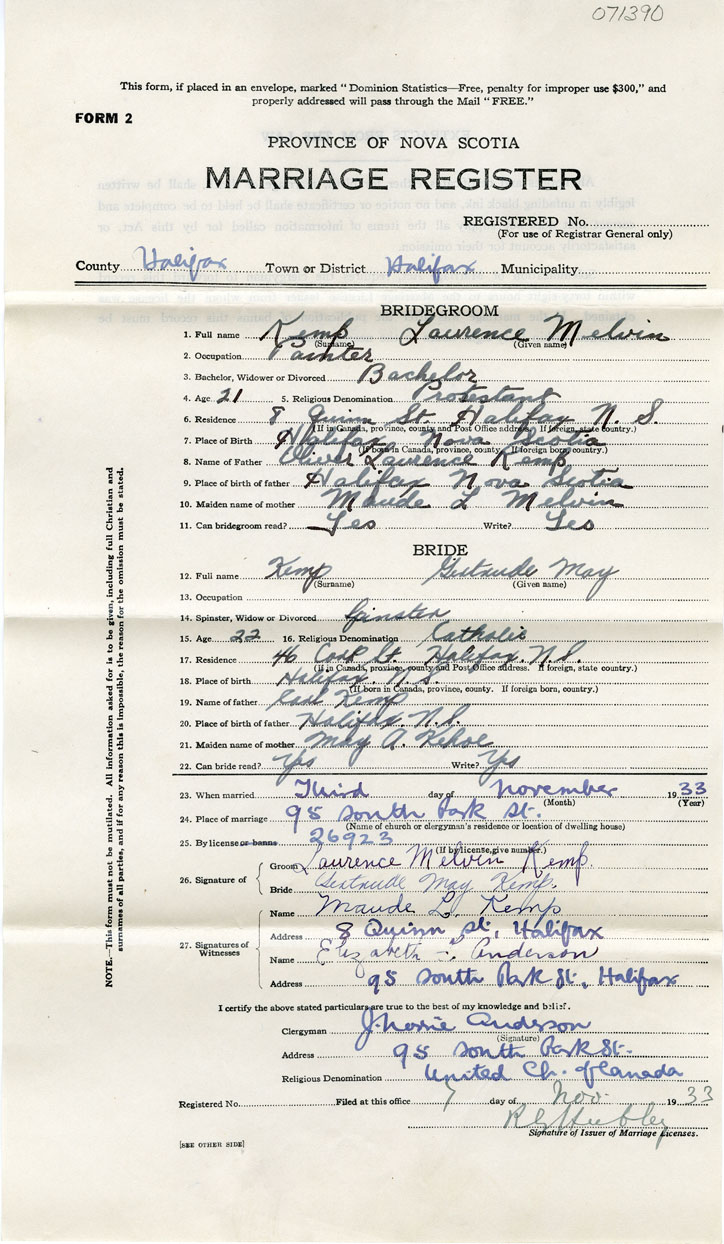 071390
This form, if placed in an envelope, marked "Dominion Statistics—Free, penalty for improper use $300," and
properly addressed will pass through the Mail "FREE."
FORM 2
PROVINCE OF NOVA SCOTIA
MARRIAGE REGISTER
REGISTERED No.
(For use of Registrar General only)
County Halifax Town or District Halifax Municipality
BRIDEGROOM
1. Full name Kemp Laurence Melvin
(Surname) (Given name)
2. Occupation Painter
3. Bachelor, Widower or Divorced Bachelor
4. Age 21 5. Religious Denomination Protestant
6. Residence 8 Quinn St. Halifax N. S.
(If in Canada, province, county and Post Office address. If foreign, state country.)
7. Place of Birth Halifax Nova Scotia
(If born in Canada, province, county. If foreign born, country.)
8. Name of Father Oliver Laurence Kemp
9. Place of birth of father Halifax Nova Scotia
10. Maiden name of mother Maude L Melvin
11. Can bridegroom read? Yes Write? Yes
BRIDE
12. Full name Kemp Gertrude May
(Surname) (Given name)
13. Occupation
14. Spinster, Widow or Divorced Spinster
15. Age 22 16. Religious Denomination Catholic
17. Residence 46 Cork St. Halifax. N.S.
(If in Canada, province, county and Post Office address. If foreign, state country.)
18. Place of birth Halifax. N.S.
(If born in Canada, province, county. If foreign born, country.)
19. Name of father Earl Kemp
20. Place of birth of father Halifax. N.S.
21. Maiden name of mother May A. Kehoe
22. Can bride read? Yes Write? Yes
23. When married Third day of November 1933
(Month) (Year)
24. Place of marriage 95 South Park St.
(Name of church or clergyman's residence or location of dwelling house)
25. By license or banns 26923
(If by license, give number.)
26. Signature of
Groom Laurence Melvin Kemp
Bride Gertrude May Kemp.
27. Signatures of Witnesses
Name Maude L. Kemp
Address 8 Quinn St, Halifax
Name Elizabeth Anderson
Address 95 South Park St, Halifax
I certify the above stated particulars are true to the best of my knowledge and belief.
Clergyman Anderson
(Signature)
Address 95 South Park St.
Religious Denomination United Ch. of Canada
Registered No. Filed at this office 7 day of Nov. 1933
Signature of Issuer of Marriage Licenses.
[SEE OTHER SIDE]
NOTE.—This form must not be mutilated. All information asked for is to be given, including full Christian and
surnames of all parties, and if for any reason this is impossible, the reason for the omission must be stated.